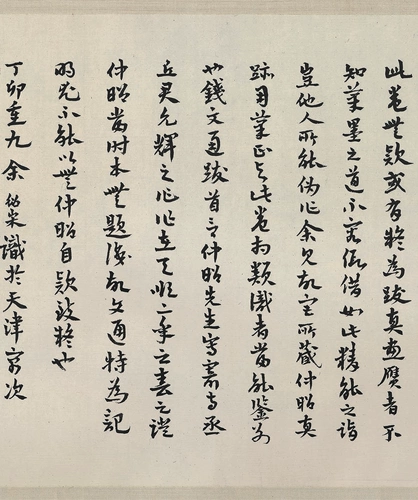 此卷無款或有疑為跋真畫贋者不
知筆墨之道不容假借如此精能之詣
豈他人所能偽作余見故宮所藏仲昭真
跡用筆正与此卷相類識者當能鑒别
也錢文通跋首言仲昭先生寫寄与丞
丘君允輝之作作在天順二年之春之證
仲昭當時本無題識故文通特為記
明尤不能以無仲昭自款致疑也
丁卯重九余幼宋識於天津寓次